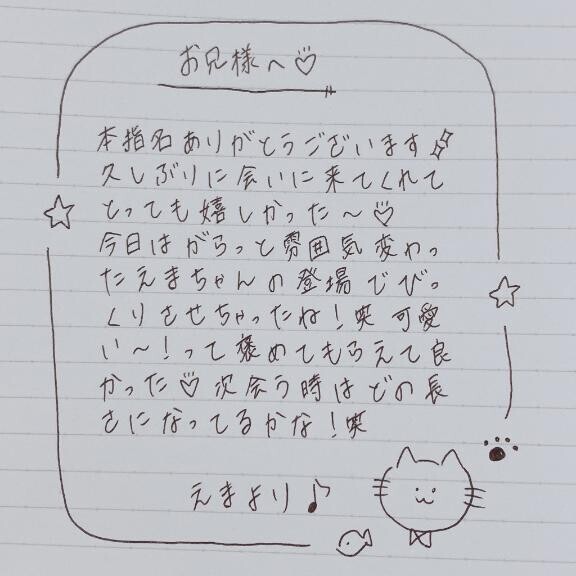 お兄様へ♡
本指名ありがとうございます✨
久しぶりに会いに来てくれて
とっても嬉しかった〜♡
今日はがらっと雰囲気変わっ
たえまちゃんの登場でびっ
くりさせちゃったね！笑 可愛
い〜！って褒めてもらえて良
かった♡次会う時はどの長
さになってるかな！笑
えまより♪